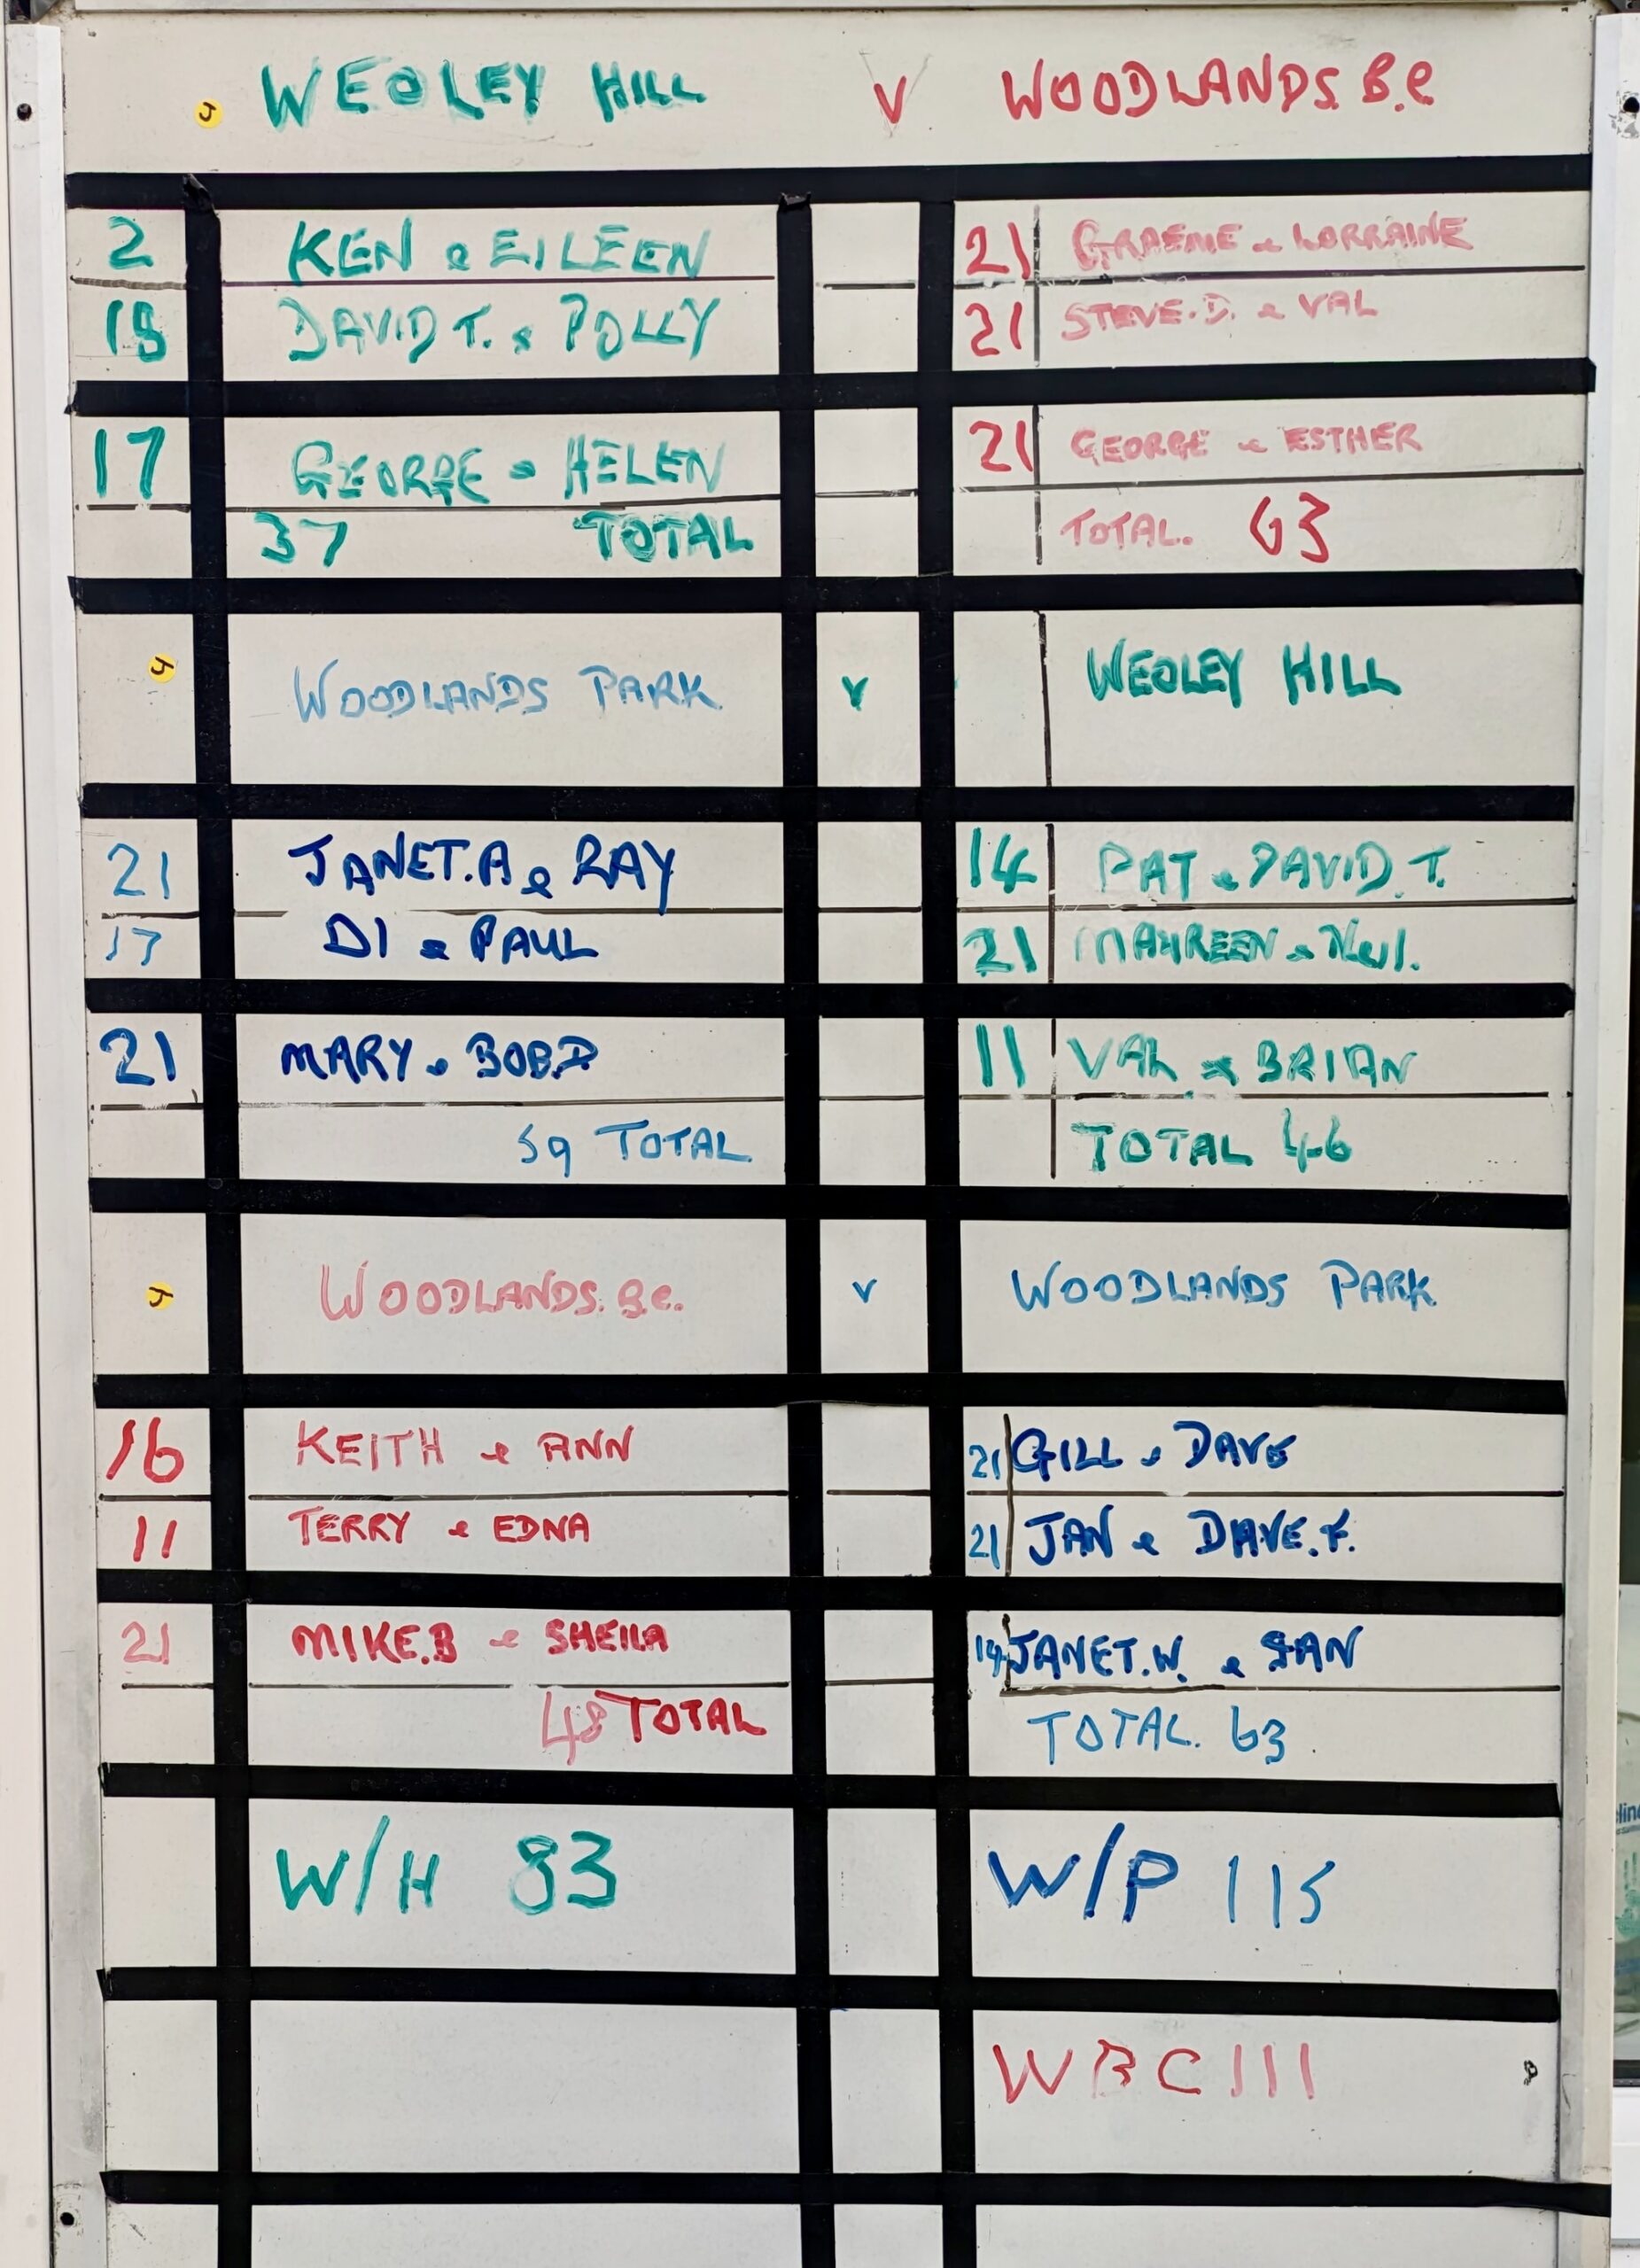 J WEOLEY HILL V WOODLANDS. B.C
2 KEN & EILEEN 21 GRAEME & LORRAINE
18 DAVID T. & POLLY 21 STEVE.D. & VAL
17 GEORGE & HELEN 21 GEORGE & ESTHER
37 TOTAL TOTAL. 63
J WOODLANDS PARK V WEOLEY HILL
21 JANET.A & RAY 14 PAT & DAVID.T.
17 DI & PAUL 21 MAUREEN & Neil.
21 MARY & BOB.D 11 VAL & BRIAN
59 TOTAL TOTAL 46
J WOODLANDS. B.C. V WOODLANDS PARK
16 KEITH & ANN 21 GILL & DAVE
11 TERRY & EDNA 21 JAN & DAVE.F.
21 MIKE.B & SHEILA 14 JANET.W. & JAN
48 TOTAL TOTAL. 63
W/H 83 W/P 115
WBC 111